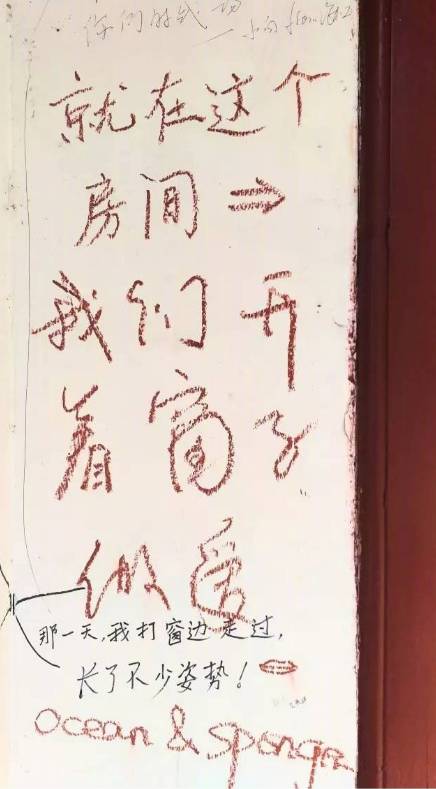 就在这个
房间⇒
我们开
着窗子
做爱
那一天,我打窗边走过,
长了不少姿势!
Ocean & Sponge